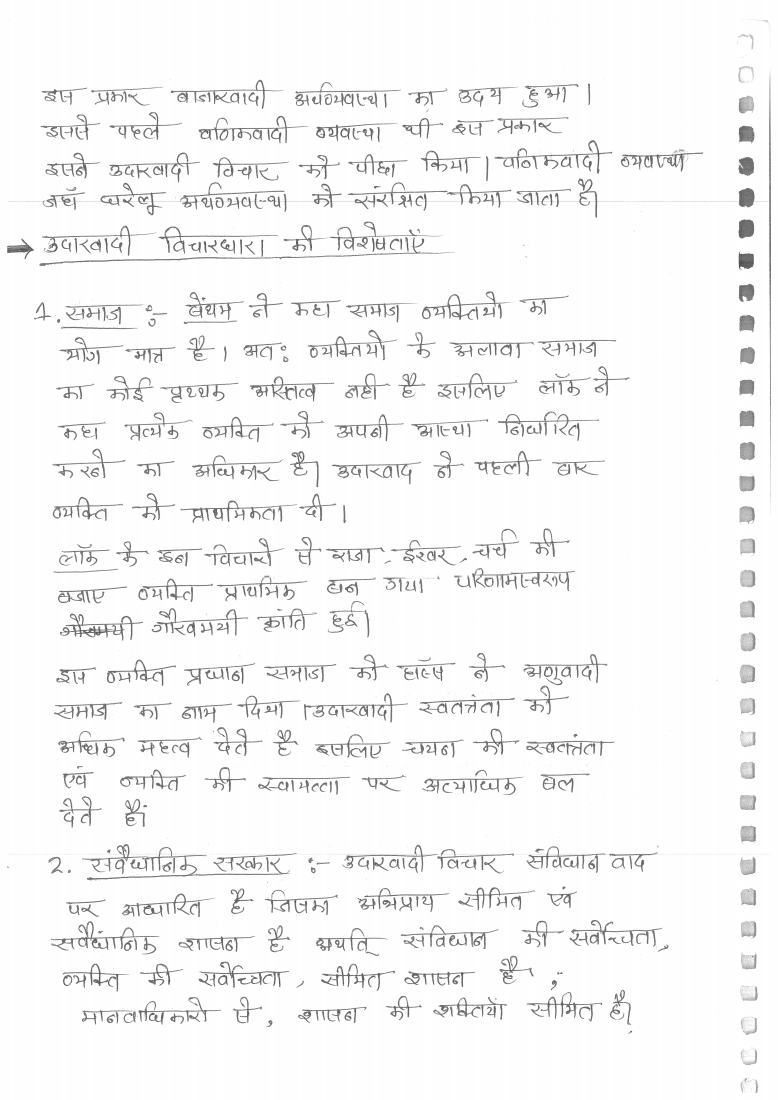 इस प्रकार बाजारवादी अर्थव्यवस्था का उदय हुआ।
इससे पहले वणिकवादी व्यवस्था थी इस प्रकार
इसने उदारवादी विचार को पीछा किया। वणिकवादी व्यवस्था
जहाँ घरेलू अर्थव्यवस्था को संरक्षित किया जाता है।
→ उदारवादी विचारधारा की विशेषताएँ
1. समाज :- बेंथम ने कहा समाज व्यक्तियो का
योग मात्र है। अतः व्यक्तियो के अलावा समाज
का कोई पृथ्थक अस्तित्व नही है इसलिए लॉक ने
कहा प्रत्येक व्यक्ति को अपनी आस्था निर्धारित
करने का अधिकार है। उदारवाद ने पहली बार
व्यक्ति को प्राथमिकता दी।
लॉक के इन विचारो से राजा, ईश्वर, चर्च की
बजाए व्यक्ति प्राथमिक बन गया परिणामस्वरूप
गौरवमयी क्रांति हुई।
इस व्यक्ति प्रधान समाज को हॉब्स ने अणुवादी
समाज का नाम दिया। उदारवादी स्वतंत्रता को
अधिक महत्व देते है इसलिए चयन की स्वतंत्रता
एवं व्यक्ति की स्वायत्ता पर अत्याधिक बल
देते हैं।
2. संवैधानिक सरकार :- उदारवादी विचार संविधान वाद
पर आधारित है जिसका अभिप्राय सीमित एवं
संवैधानिक शासन है अर्थात् संविधान की सर्वोच्चता,
व्यक्ति की सर्वोच्चता, सीमित शासन है,
मानवाधिकारो से, शासन की शक्तियाँ सीमित है।